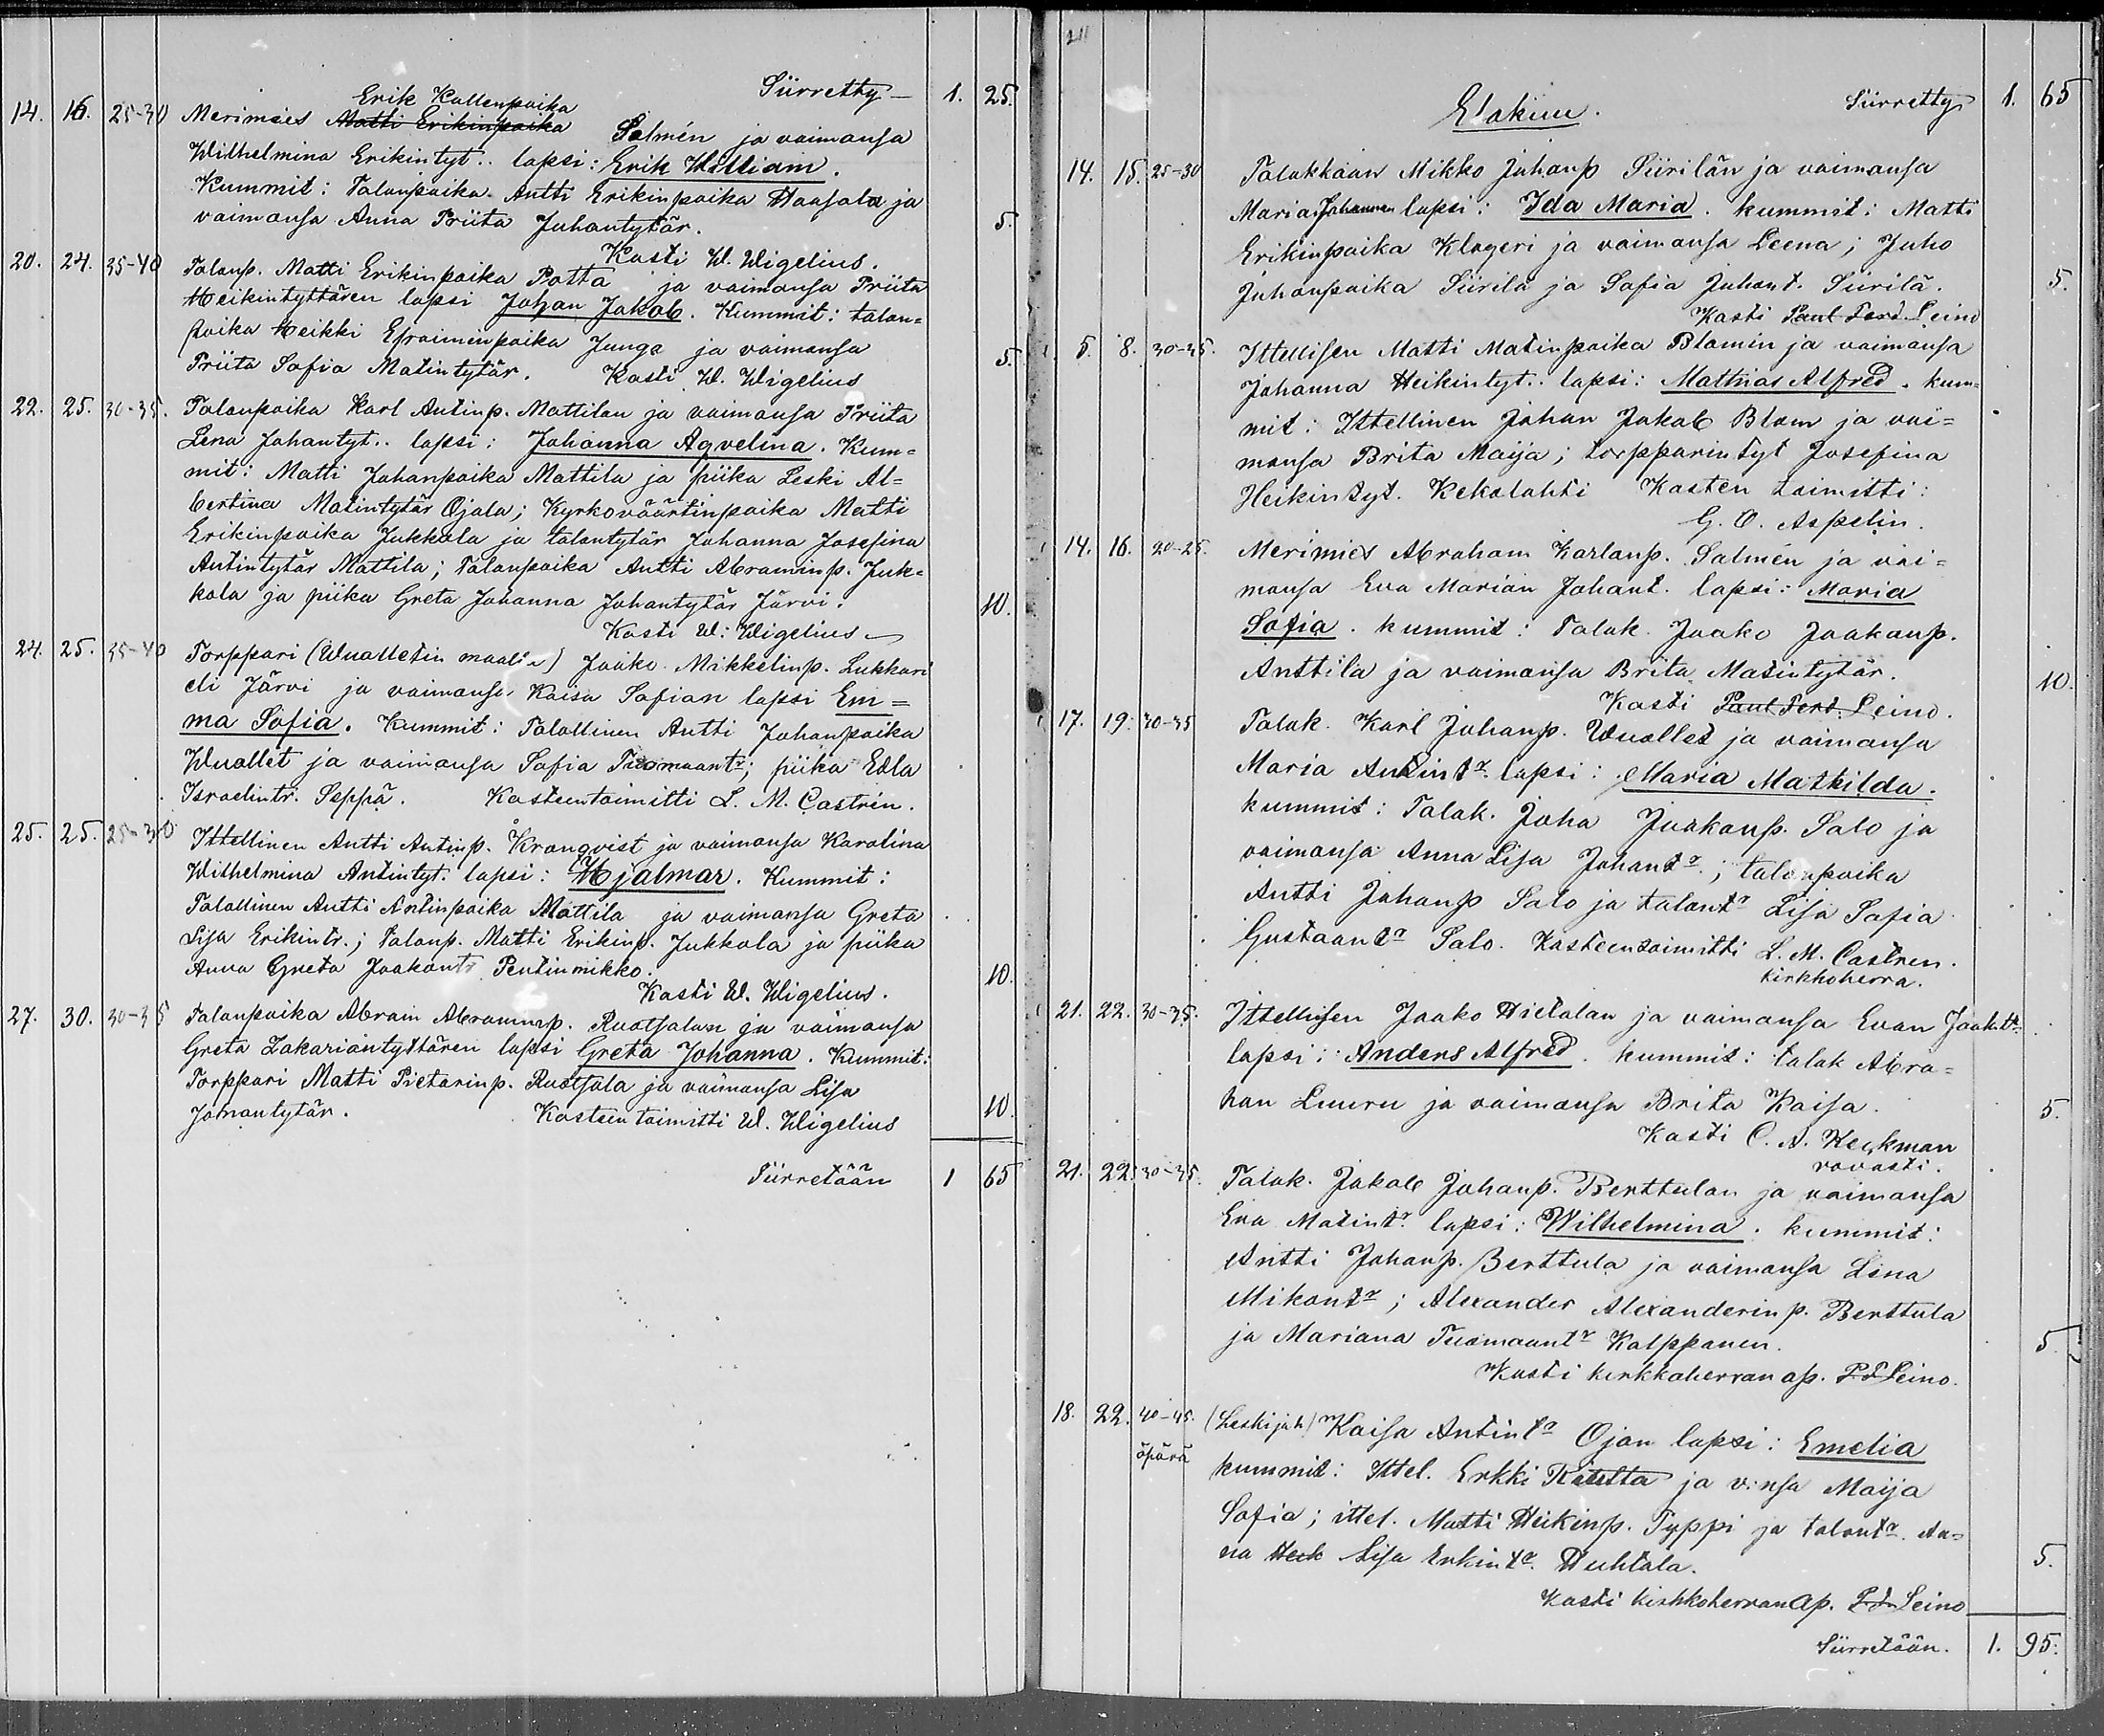 Siirretty — 1. 25.
Erik Kallenpoika
14. 16. 25-30 Merimies Matti Erikinpoika Salmén ja vaimonsa
Wilhelmina Erikintyt.. lapsi: Erik William.
Kummit: Talonpoika. Antti Erikinpoika Haasala ja
vaimonsa Anna Priita Juhontytär. 5.
Kasti W. Wigelius.
20. 24. 35-40 Talonp. Matti Erikinpoika Potta ja vaimonsa Priita
Heikintyttären lapsi Johan Jakob. Kummit: talon=
poika Heikki Efraiminpoika Junga ja vaimonsa
Priita Sofia Matintytär. Kasti W. Wigelius 5.
22. 25. 30-35. Talonpoika Karl Antinp. Mattilan ja vaimonsa Priita
Lena Johantyt.. lapsi: Johanna Aqvelina. Kum=
mit: Matti Johanpoika Mattila ja piika Leski Al=
bertina Matintytär Ojala; Kyrkoväärtinpoika Matti
Erikinpoika Jukkola ja talontytär Johanna Josefina
Antintytär Mattila; Talonpoika Antti Abraminp. Juk=
kola ja piika Greta Johanna Johantytär Järvi. 10.
Kasti W: Wigelius
24. 25. 35-40 Torppari (Wualletin maalla) Jaako Mikkelinp. Lukkari
eli Järvi ja vaimonsa Kaisa Sofian lapsi Em=
ma Sofia. Kummit: Talollinen Antti Johanpoika
Wuollet ja vaimonsa Sofia Tuomaantr; piika Edla
Israelintr. Seppä. Kasteentoimitti L. M. Castrén.
25. 25. 25-30 Ittellinen Antti Antinp. Kronqvist ja vaimonsa Karolina
Wilhelmina Antintyt. lapsi: Hjalmar. Kummit:
Talollinen Antti Antinpoika Mattila ja vaimonsa Greta
Lisa Erikintr.; Talonp. Matti Erikinp. Jukkola ja piika
Anna Greta Jaakontr Pentinmikko. 10.
Kasti W. Wigelius.
27. 30. 30-35 Talonpoika Abram Abraminp. Ruotsalan ja vaimonsa
Greta Zakariantyttären lapsi Greta Johanna. Kummit:
Torppari Matti Pietarinp. Ruotsala ja vaimonsa Lisa
Johantytär. Kasteen toimitti W. Wigelius 10.
Siirretään 1 65
211
Elokuu. Siirretty 1. 65
14. 15. 25-30 Talokkaan Mikko Juhanp Siirilän ja vaimonsa
Maria Johannan lapsi: Ida Maria. kummit: Matti
Erikinpoika Klageri ja vaimonsa Leena; Juho
Juhonpoika Siirilä ja Sofia Juhont. Siirilä. 5.
Kasti Paul Ferd. Leino
5. 8. 30-35. Ittellisen Matti Matinpoika Blomin ja vaimonsa
Johanna Heikintyt.. lapsi: Mathias Alfred. kum=
mit: Ittellinen Johan Jakob Blom ja vai=
monsa Brita Maija; torpparintyt Josefina
Heikintyt. Kekolahti Kasten toimitti:
G. O. Aspelin.
14. 16. 20-25. Merimies Abraham Karlanp. Salmén ja vai=
monsa Eva Marian Johant. lapsi: Maria
Sofia. kummit: Talok. Jaako Jaakonp.
Anttila ja vaimonsa Brita Matintytär. 10.
Kasti Paul Ferd. Leino.
17. 19. 30-35 Talok. Karl Johanp. Wuollet ja vaimonsa
Maria Antintr lapsi: Maria Mathilda.
kummit: Talok. Joha Jaakonp. Salo ja
vaimonsa Anna Lisa Johantr.; talonpoika
Antti Johanp Salo ja talontr Lisa Sofia
Gustaantr Salo. Kasteentoimitti L. M. Castren.
kirkkoherra.
21. 22. 30-35. Ittellisen Jaako Hietalan ja vaimonsa Evan Jaakntr.
lapsi: Anders Alfred. kummit: talok Abra=
han Luuru ja vaimonsa Brita Kaisa. 5.
Kasti C. A. Heckman
rovasti.
21. 22. 30-35. Talok. Jakob Johanp. Berttulan ja vaimonsa
Eva Matintr. lapsi: Wilhelmina. kummit:
Antti Johanp. Berttula ja vaimonsa Lena
Mikontr; Alexander Alexanderinp. Berttula
ja Mariana Tuomaantr Kalppanen. 5
Kasti kirkkoherran ap. P F Leino.
18. 22. 40-45. (Leskijah) Kaisa Antintr Ojan lapsi: Emelia
äpärä kummit: Ittel. Erkki Ratutta ja v:nsa Maija
Sofia; ittel. Matti Heikinp. Typpi ja talontr. An=
na Heik Lisa Erkintr. Huhtala. 5.
Kasti kirkkoherran ap. P F Leino
Siirretään. 1. 95.